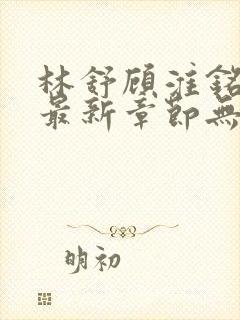 林舒顾淮铭
最新章節無
明初